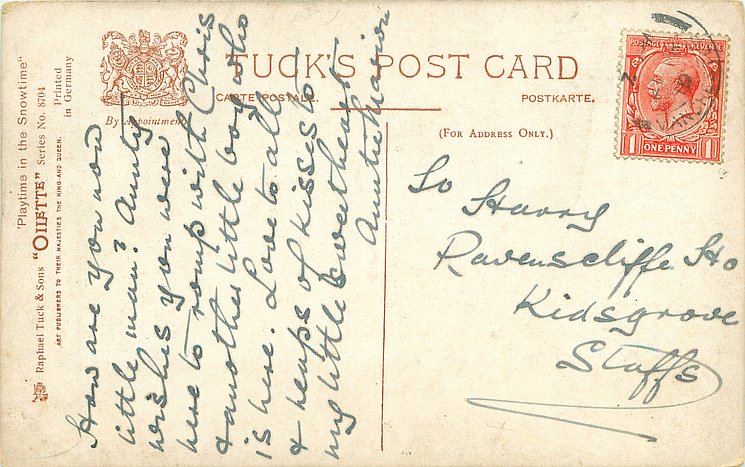 "Playtime in the Snowtime"
Raphael Tuck & Sons "OILETTE" Series No. 8704
Printed in Germany
ART PUBLISHERS TO THEIR MAJESTIES THE KING AND QUEEN.
By Appointment
TUCK'S POST CARD
CARTE POSTALE.
POSTKARTE.
(FOR ADDRESS ONLY.)
POSTAGE REVENUE
1 ONE PENNY 1
How are you now
little man? Aunty
wishes you were
here to romp with Chris
& another little boy who
is here. Love to all
& heaps of kisses to
my little sweetheart
Auntie Marion
To Harry
Ravenscliffe Ho
Kidsgrove
Staffs